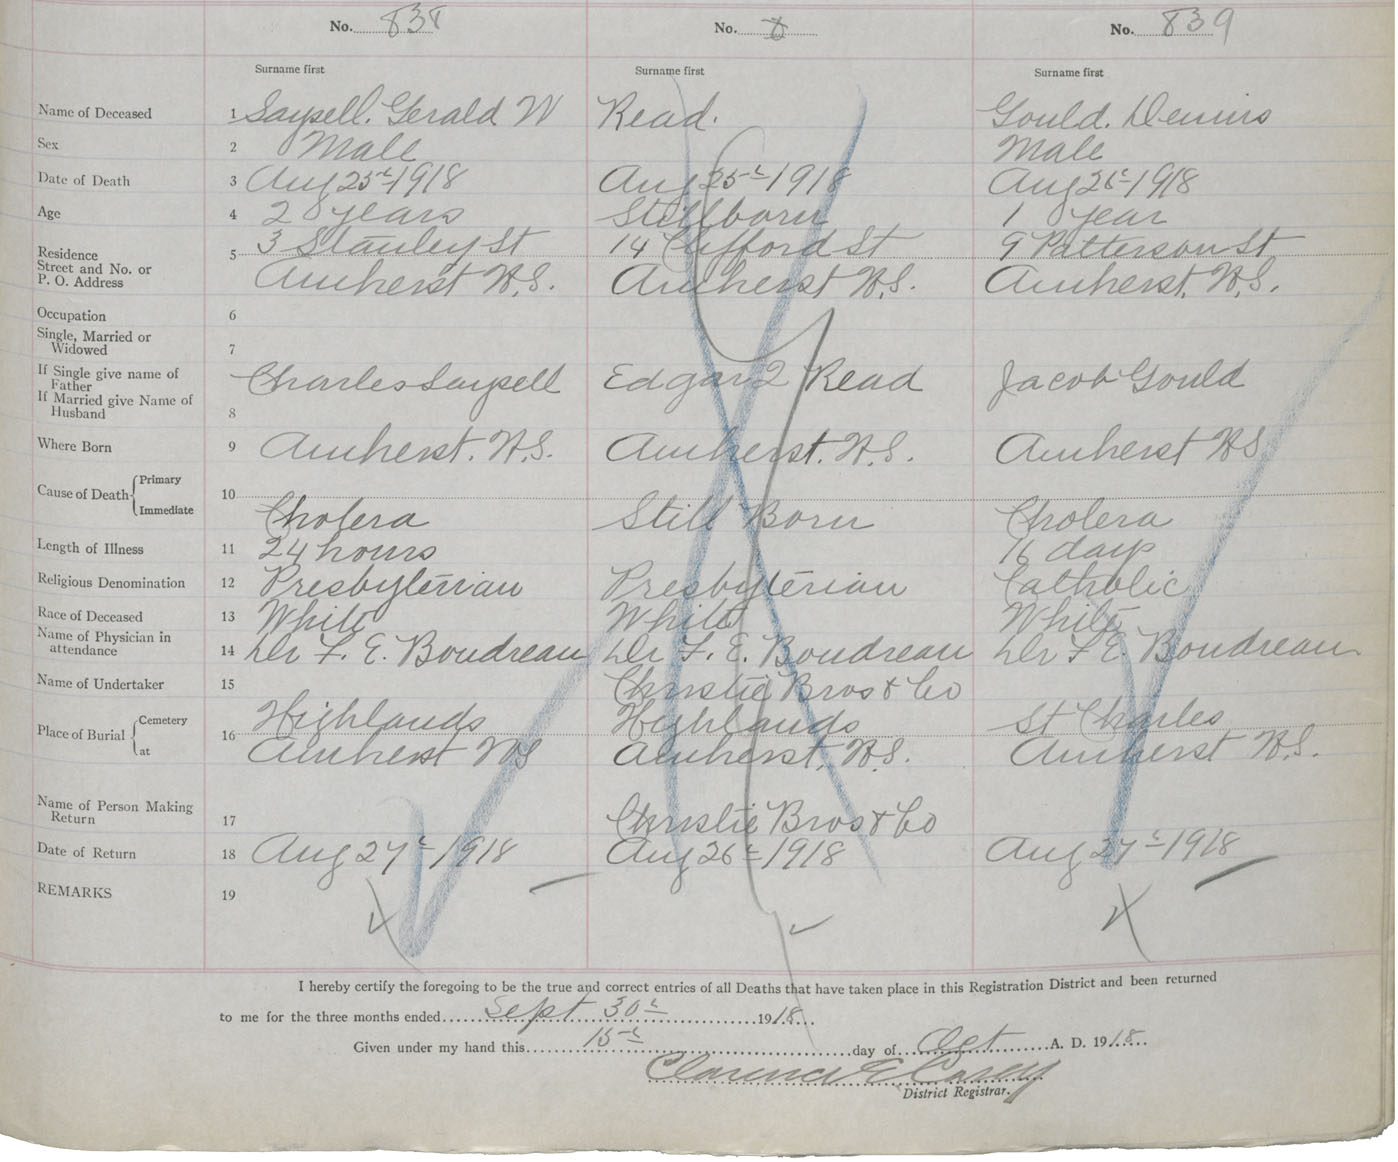 No. 838 No. 8 No. 839
Surname first Surname first Surname first
Name of Deceased 1 Saysell. Gerald W Read. Gould. Dennis
Sex 2 Male Male
Date of Death 3 Aug 25th 1918 Aug 25th 1918 Aug 26th 1918
Age 4 2 years Stillborn 1 year
Residence 5 3 Stanley St 14 Clifford St 9 Patterson St
Street and No. or
P. O. Address Amherst N.S. Amherst N.S. Amherst, N.S.
Occupation 6
Single, Married or
Widowed 7
If Single give name of
Father Charles Saysell Edgar Read Jacob Gould
If Married give Name of
Husband 8
Where Born 9 Amherst. N.S. Amherst. N.S. Amherst NS
Cause of Death Primary 10
Immediate Cholera Still Born Cholera
Length of Illness 11 24 hours 16 days
Religious Denomination 12 Presbyterian Presbyterian Catholic
Race of Deceased 13 White White White
Name of Physician in
attendance 14 Dr F. E. Boudreau Dr F. E. Boudreau Dr F E. Boudreau
Name of Undertaker 15 Christie Bros & Co
Place of Burial Cemetery 16 Highlands Highlands St Charles
at Amherst NS Amherst, N.S. Amherst N.S.
Name of Person Making
Return 17 Christie Bros & Co
Date of Return 18 Aug 27th 1918 Aug 26th 1918 Aug 27th 1918
REMARKS 19
I hereby certify the foregoing to be the true and correct entries of all Deaths that have taken place in this Registration District and been returned
to me for the three months ended Sept 30th 1918
Given under my hand this 15th day of Oct A. D. 1918
Clarence E Casey
District Registrar.